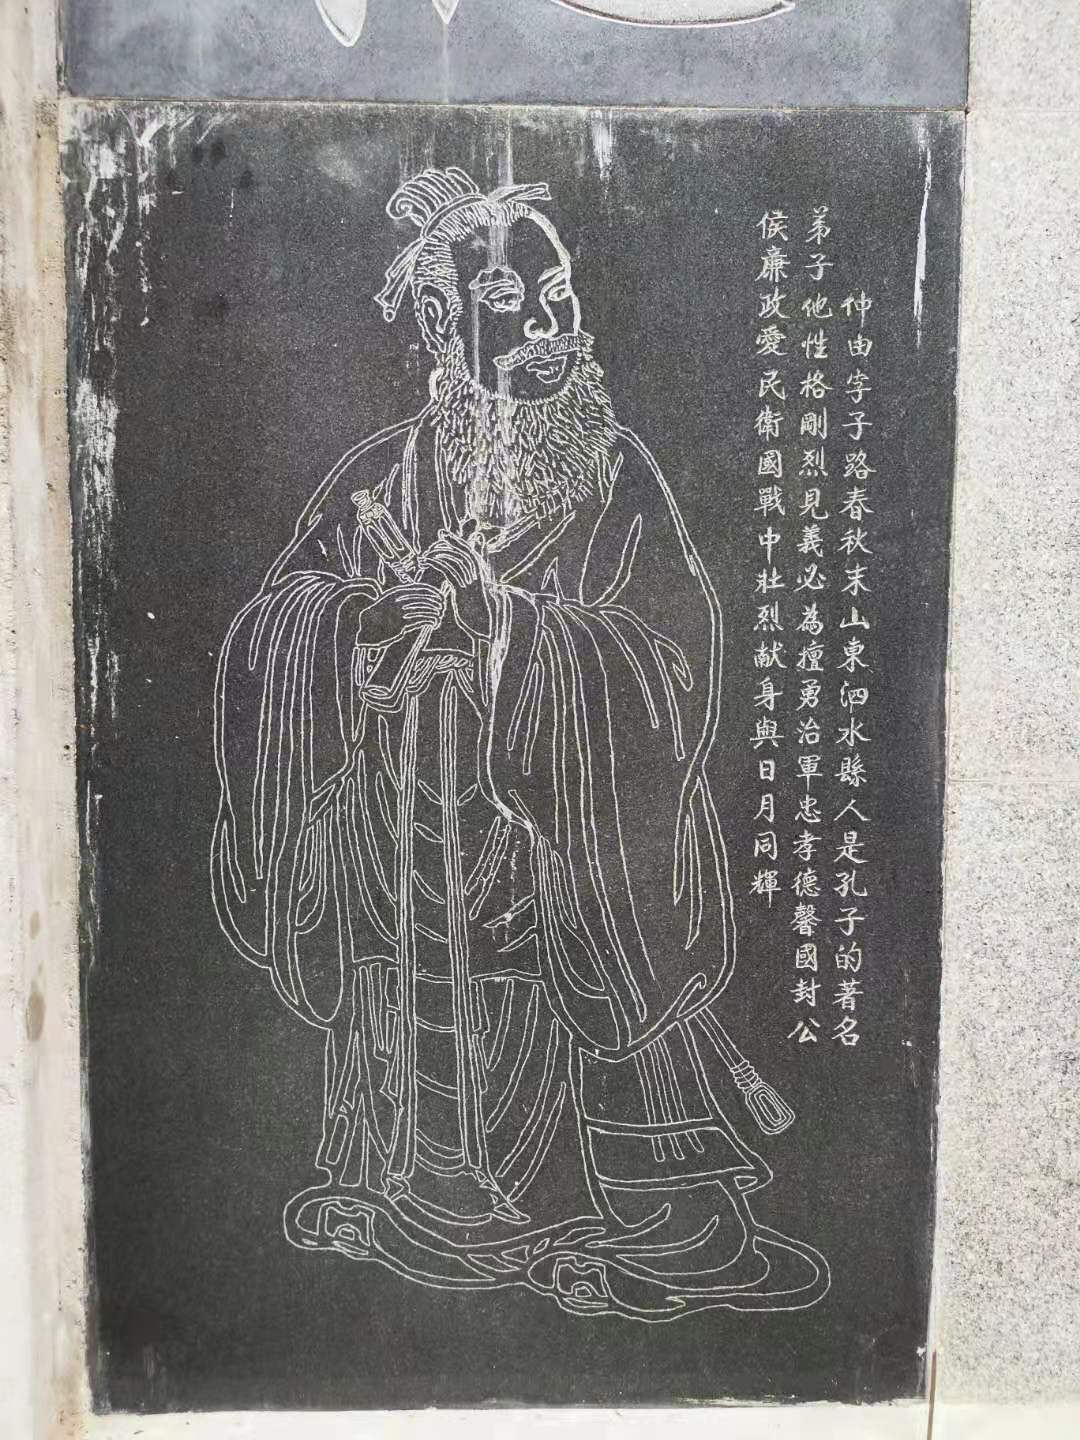 仲由字子路春秋末山東泗水縣人是孔子的著名
弟子他性格剛烈見義必為擅勇治軍忠孝德馨國封公
侯廉政愛民衛國戰中壯烈献身與日月同輝